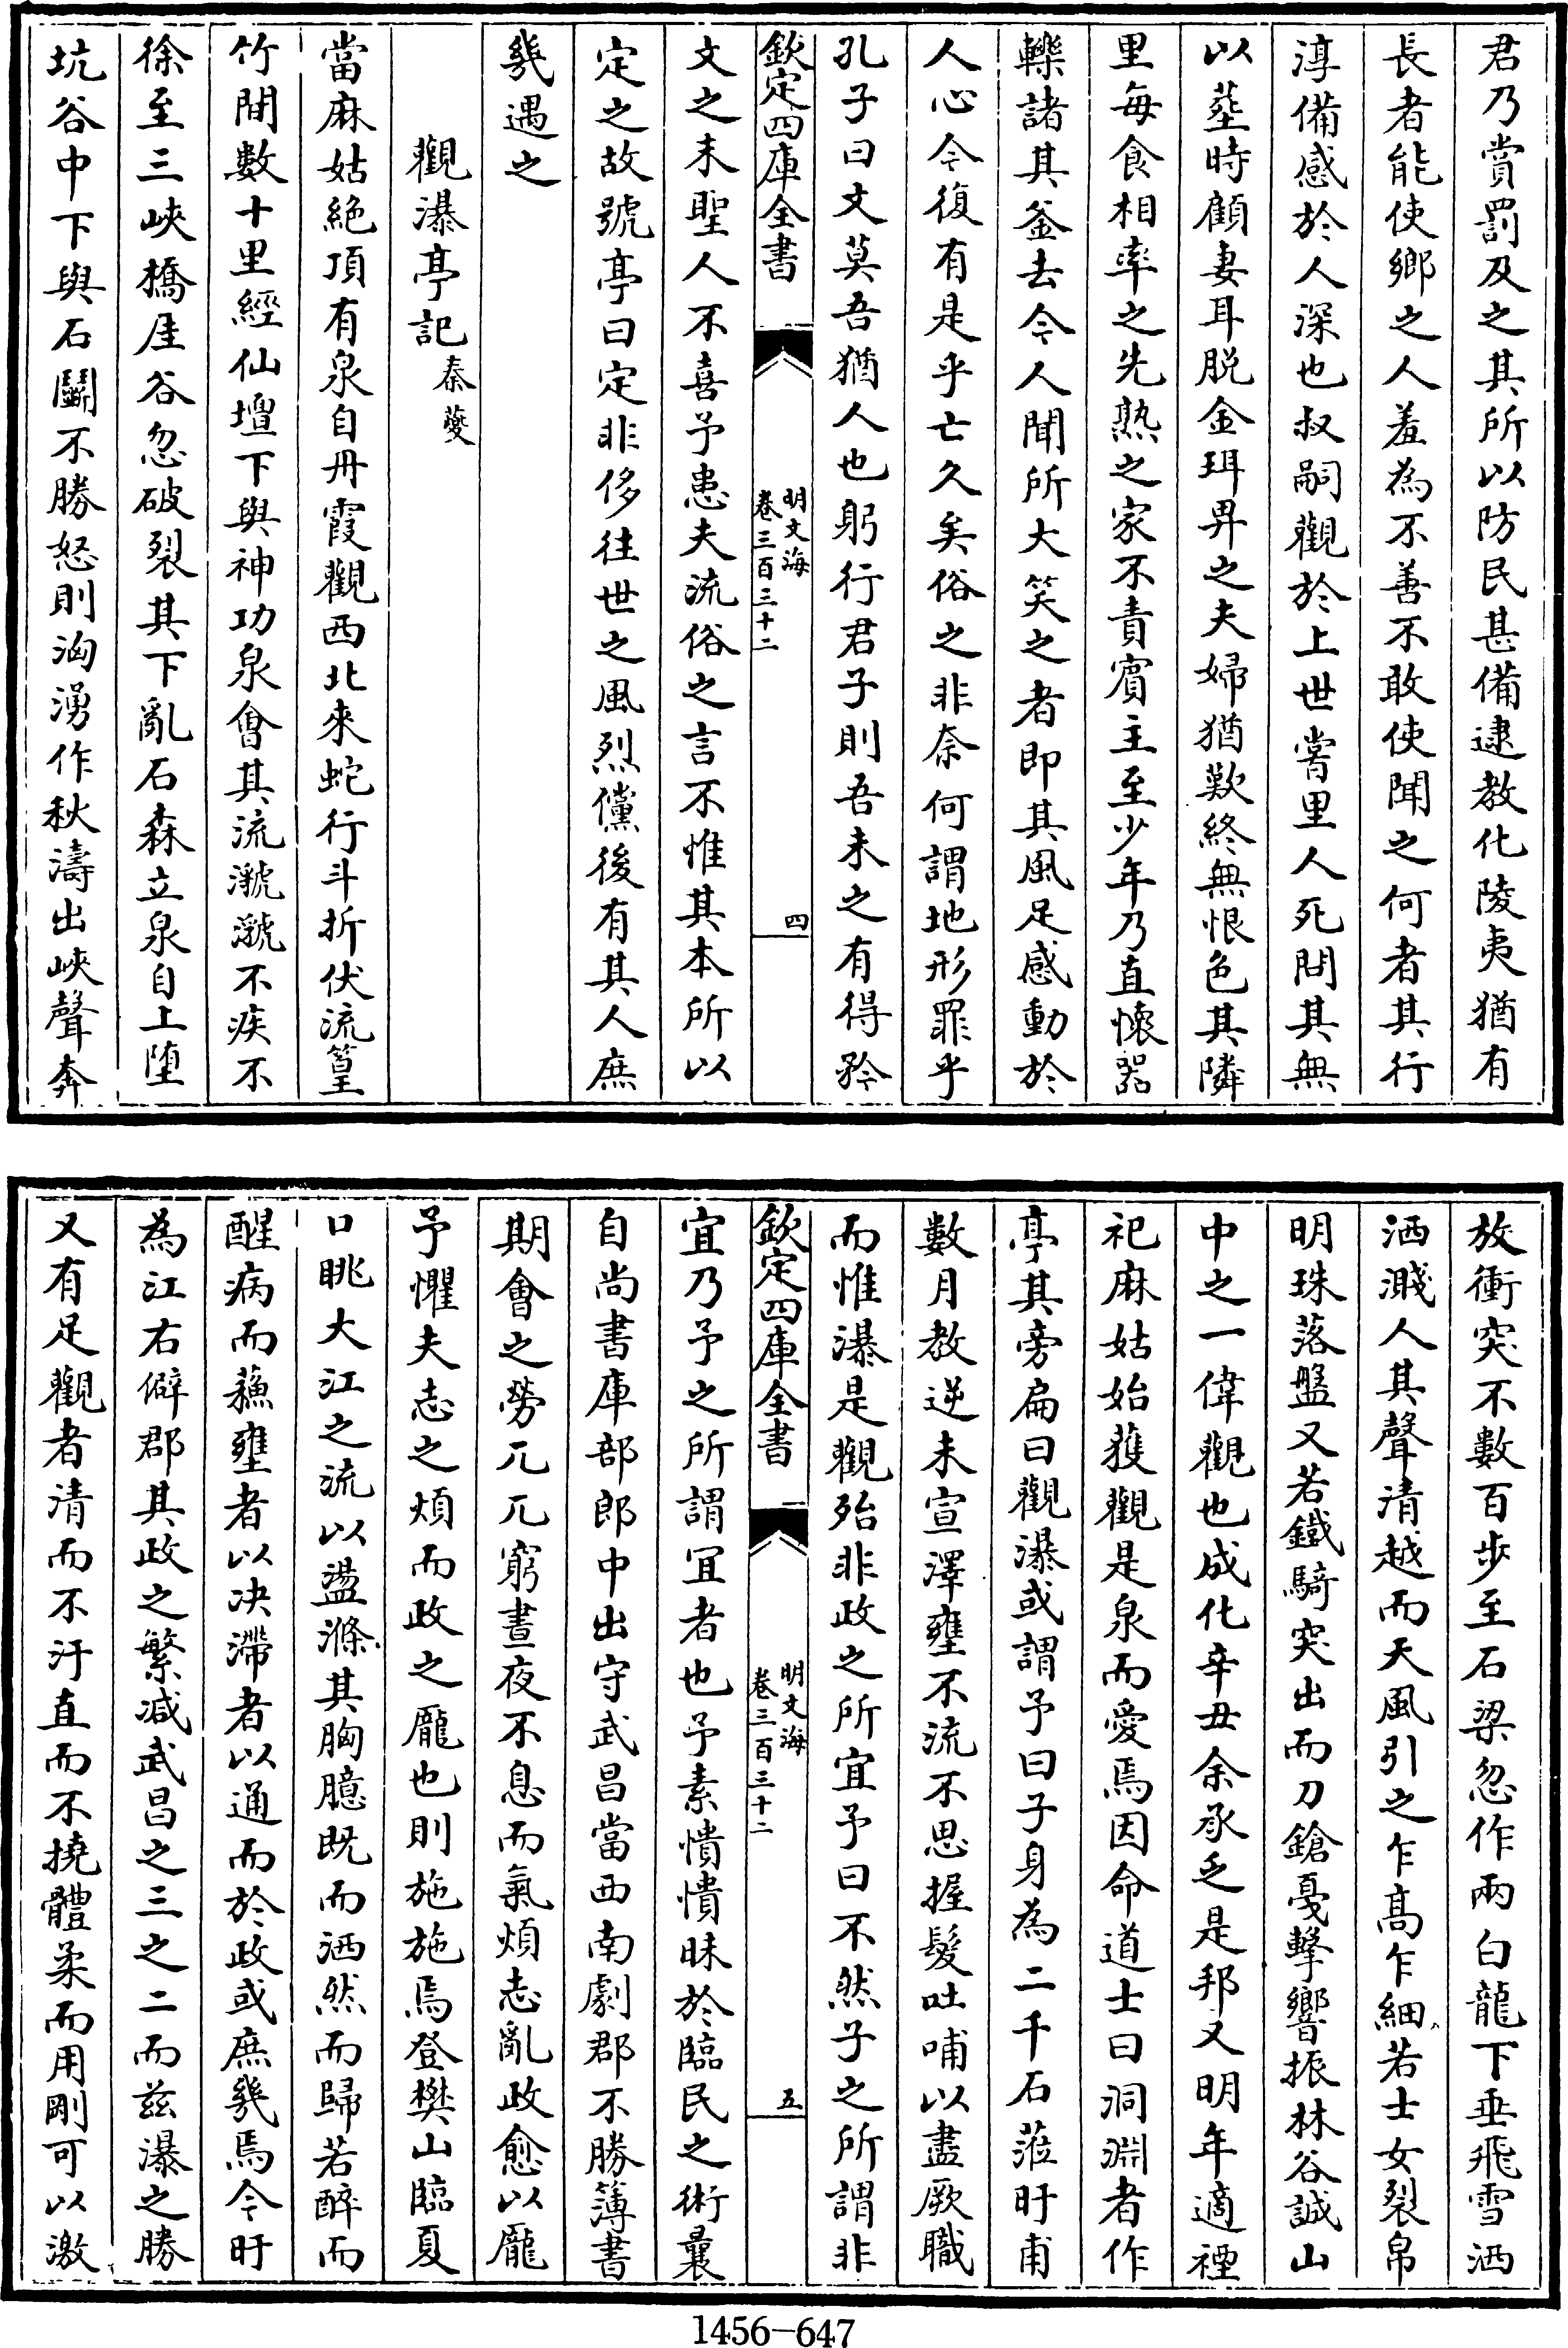 君乃賞罰及之其所以防民甚備逮教化陵夷猶有
長者能使鄉之人羞為不善不敢使聞之何者其行
淳備感於人深也叔嗣觀於上世嘗里人死問其無
以塟時顧妻耳脱金珥畀之夫婦猶歎終無恨色其隣
里每食相率之先熟之家不責賓主至少年乃直懷器
轢諸其釜去今人聞所大笑之者即其風足感動於
人心今復有是乎亡久矣俗之非奈何謂地形罪乎
孔子曰文莫吾猶人也躬行君子則吾未之有得矜
欽定四庫全書
明文海
卷三百三十二
四
文之末聖人不喜予患夫流俗之言不惟其本所以
定之故號亭曰定非侈往世之風烈儻後有其人庶
幾遇之
觀瀑亭記秦夔
當麻姑絶頂有泉自丹霞觀西北來蛇行斗折伏流篁
竹間數十里經仙壇下與神功泉會其流㶁㶁不疾不
徐至三峽橋厓谷忽破裂其下亂石森立泉自上墮
坑谷中下與石鬭不勝怒則洶湧作秋濤出峽聲奔
放衝突不數百步至石梁忽作兩白龍下垂飛雪洒
洒濺人其聲清越而天風引之乍高乍細若士女裂帛
明珠落盤又若鐵騎突出而刀鎗戛擊響振林谷誠山
中之一偉觀也成化辛丑余承乏是邦又明年適禋
祀麻姑始獲觀是泉而愛焉因命道士曰洞淵者作
亭其旁扁曰觀瀑或謂予曰子身為二千石蒞盱甫
數月教逆未宣澤壅不流不思握髮吐哺以盡厥職
而惟瀑是觀殆非政之所宜予曰不然子之所謂非
欽定四庫全書
明文海
卷三百三十二
五
宜乃予之所謂冝者也予素憒憒昧於臨民之術曩
自尚書庫部郎中出守武昌當西南劇郡不勝簿書
期會之勞兀兀窮晝夜不息而氣煩志亂政愈以厖
予懼夫志之煩而政之厖也則施施焉登樊山臨夏
口眺大江之流以盪滌其胸臆既而洒然而歸若醉而
醒病而蘇壅者以决滯者以通而於政或庶幾焉今盱
為江右僻郡其政之繁减武昌之三之二而兹瀑之勝
又有足觀者清而不汙直而不撓體柔而用剛可以激
1456-647